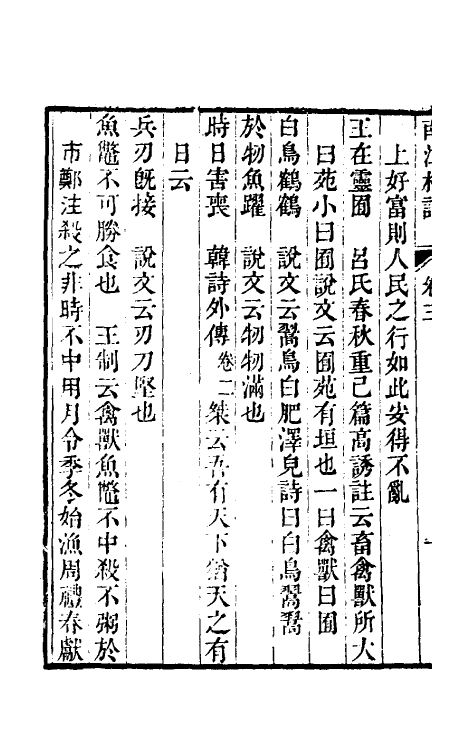 卷三
上好富則人民之行如此安得不亂
王在靈囿　呂氏春秋重己篇高誘註云畜禽獸所大
曰苑小曰囿說文云囿苑有垣也一曰禽獸曰囿
白鳥鶴鶴　說文云翯鳥白肥澤皃詩曰白鳥翯翯
於物魚躍　說文云物物滿也
時日害喪　韓詩外傳卷二桀云吾有天下猶天之有
日云
兵刃旣接　說文云刃刀堅也
魚鼈不可勝食也　王制云禽獸魚鼈不中殺不粥於
市鄭注殺之非時不中用月令季冬始漁周禮春獻